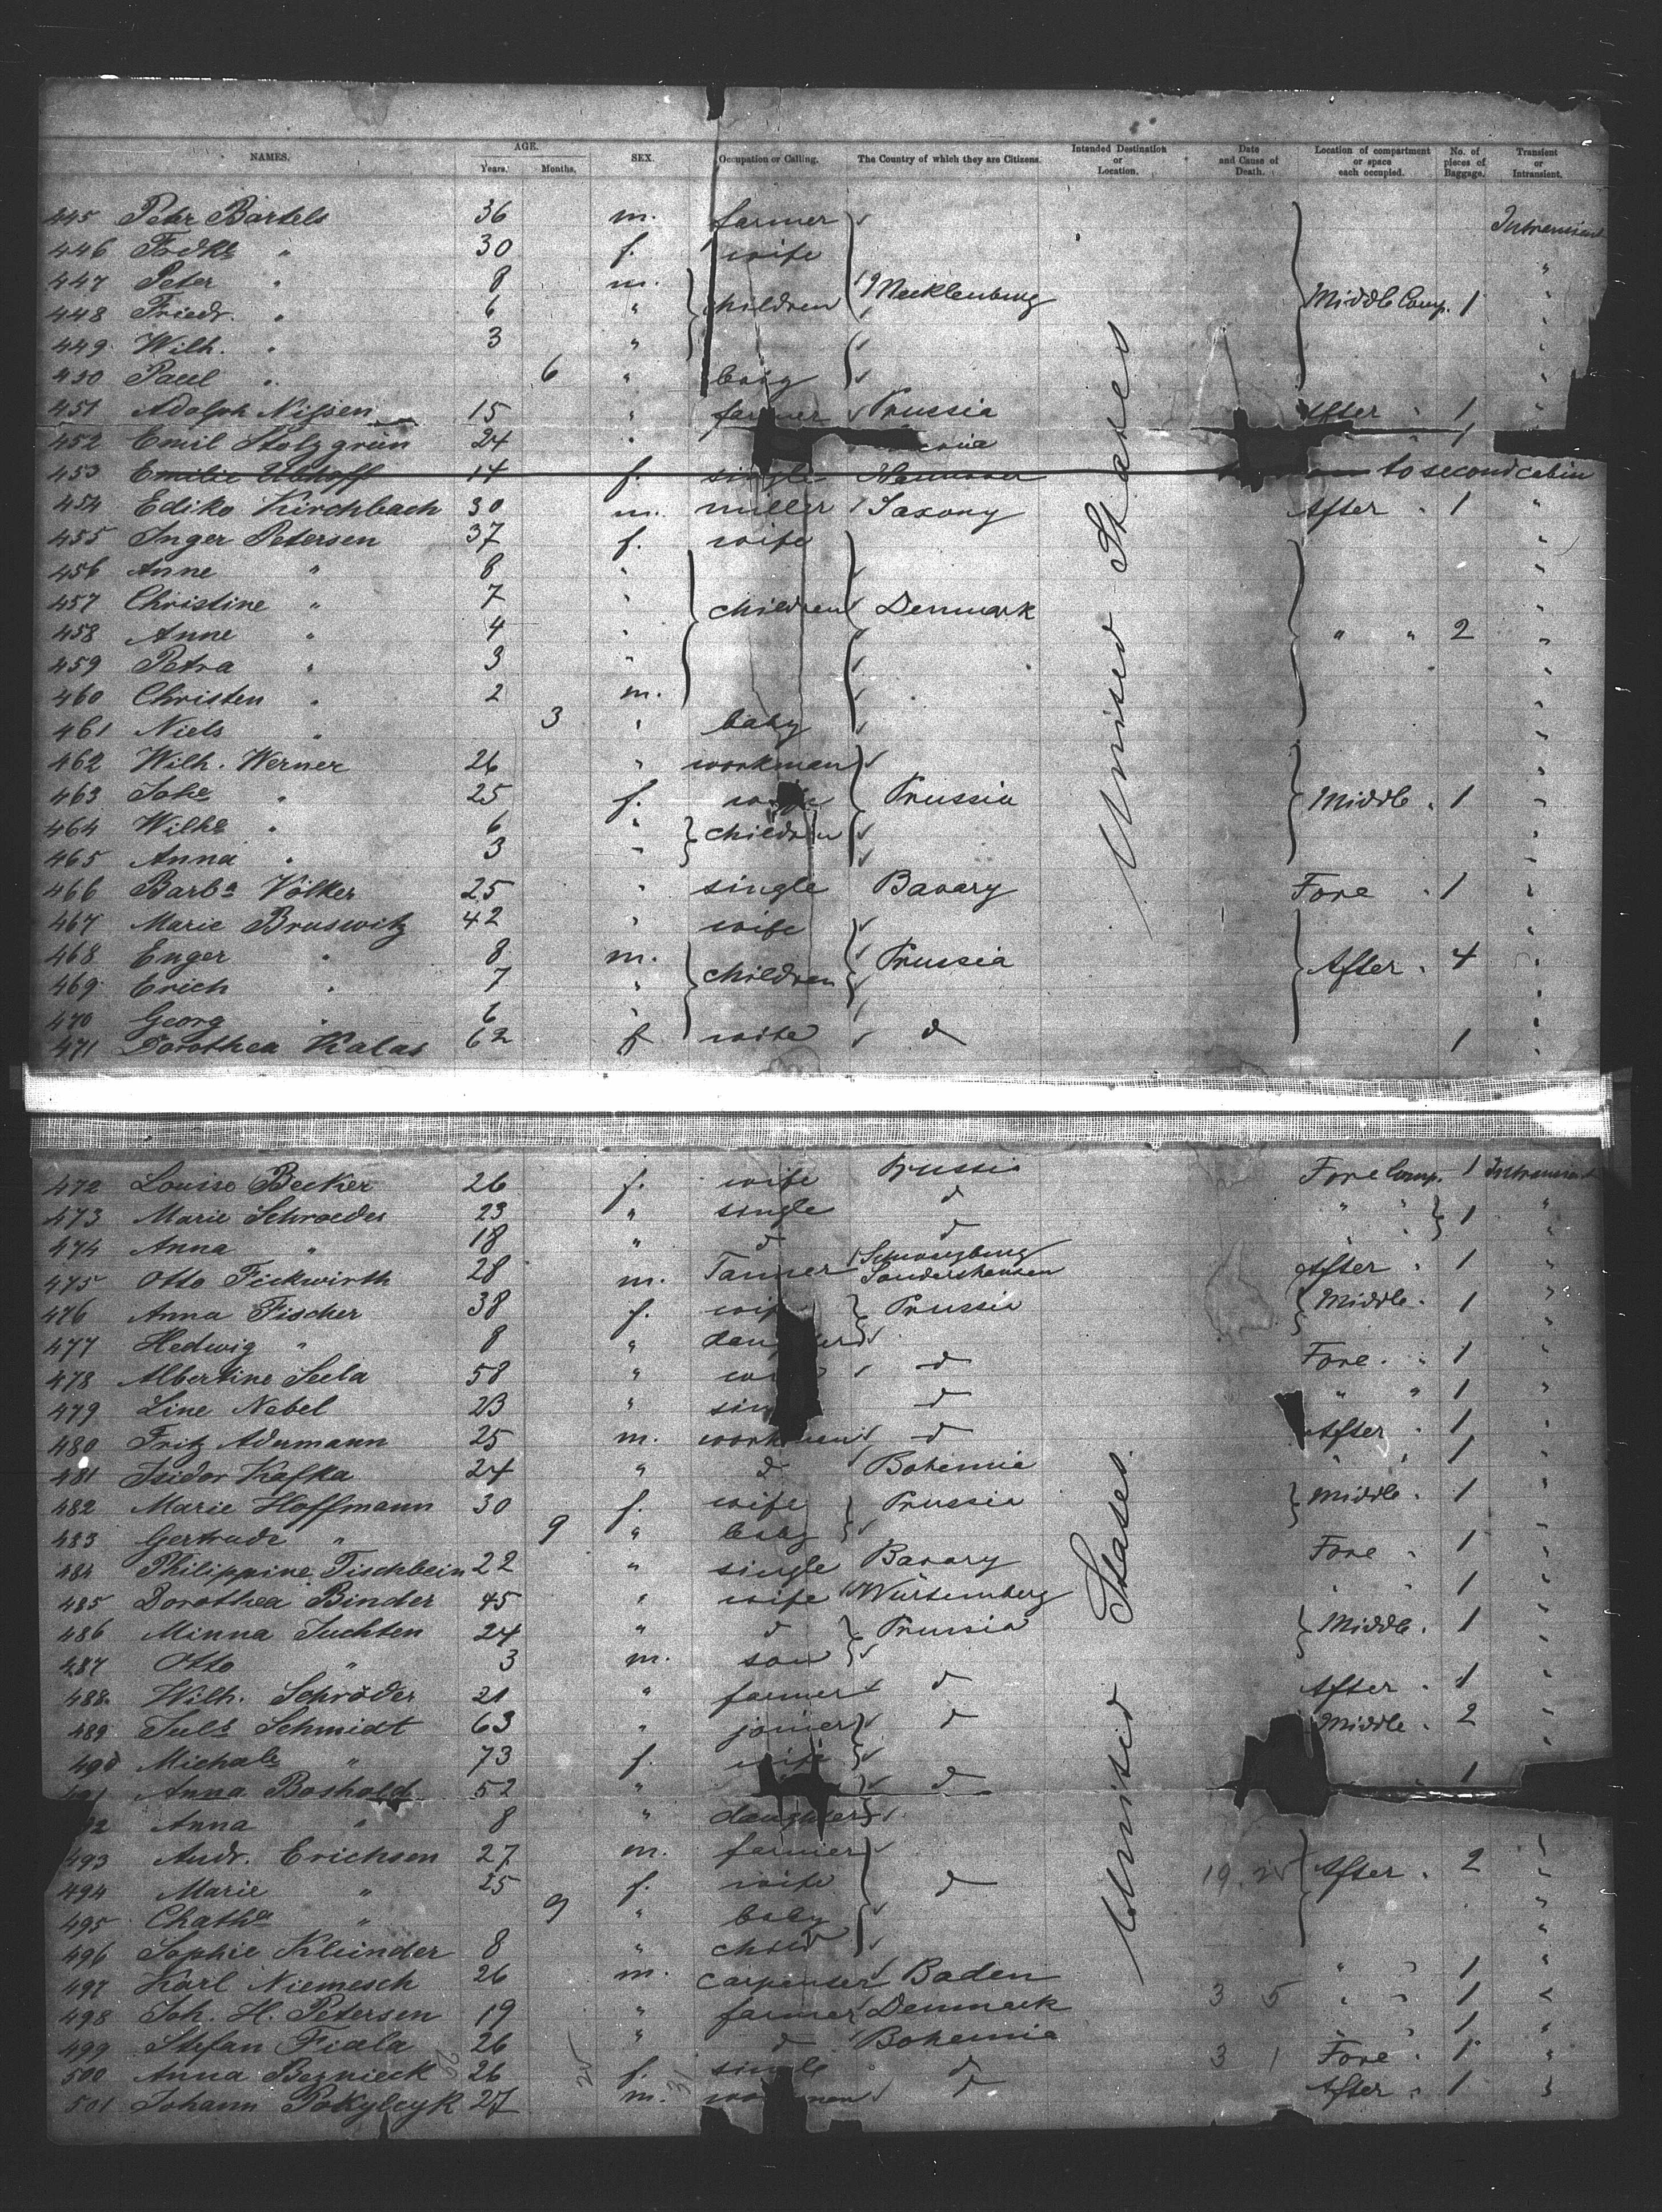 NAMES. AGE. Years. Months. SEX. Occupation or Calling. The Country of which they are Citizens. Intended Destination or Location. Date and Cause of Death. Location of compartment or space each occupied. No. of pieces of Baggage. Transient or Intransient.
445 Peter Bartels 36 m. farmer Intransient
446 " 30 f. wife "
447 Peter " 8 m. Mecklenburg "
448 Friedr. " 6 " children Middle Comp. 1 "
449 Wilh. " 3 " "
450 Paul " 6 " baby "
451 Adolph Nissen 15 " farmer Prussia After " 1 "
452 Emil Stolzgrün 24 " " 1
453 Emilie 14 f. single Hannover to second cabin
454 Ediko Kirchbach 30 m. miller Saxony After " 1 "
455 Inger Petersen 37 f. wife "
456 Anne " 8 " "
457 Christine " 7 " children Denmark "
458 Anne " 4 " " " 2 "
459 Petra " 3 " "
460 Christen " 2 m. "
461 Niels " 3 " baby "
462 Wilh. Werner 26 " workman "
463 Johe " 25 f. wife Prussia Middle " 1 "
464 Wilhe " 6 " children "
465 Anna " 3 " "
466 Barba Völker 25 " single Bavary Fore " 1 "
467 Marie Bruswitz 42 " wife "
468 Enger " 8 m. Prussia After " 4 "
469 Erich " 7 " children "
470 Georg " 6 " "
471 Dorothea Kalas 62 f wife d 1 "
United States
472 Louise Becker 26 f. wife Prussia Fore Comp. 1 Intransient
473 Marie Schroeder 23 " single d " " 1 "
474 Anna " 18 " d d " "
475 Otto Fickwirth 28 m. Tanner Schwarzburg Sondershausen After " 1 "
476 Anna Fischer 38 f. wife Prussia Middle " 1 "
477 Hedwig " 8 " daughter "
478 Albertine Seela 58 " d Fore " 1 "
479 Line Nebel 23 " d " " 1 "
480 Fritz Adermann 25 m. workman d After " 1 "
481 Isidor Kafka 24 " d Bohemia " " 1 "
482 Marie Hoffmann 30 f. wife Prussia Middle " 1 "
483 Gertrude " 9 " baby "
484 Philippine Tischbein 22 " single Bavary Fore " 1 "
485 Dorothea Binder 45 " wife Würtemberg " " 1 "
486 Minna Tuchten 24 " d Prussia Middle " 1 "
487 Otto " 3 m. son "
488 Wilh. Schröder 21 " farmer d After " 1 "
489 Juls Schmidt 63 " joiner d Middle " 2 "
490 " 73 f. wife "
491 Anna Boshold 52 " d " 1
Anna " 8 " daughter
493 Andr. Erichsen 27 m. farmer After " 2 "
494 Marie " 25 f. wife d "
495 " 9 " baby "
496 Sophie Kleinder 8 " child "
497 Karl Niemesch 26 m. carpenter Baden " " 1 "
498 Joh. H. Petersen 19 " farmer Denmark " " 1 "
499 Stefan Fiala 26 " d Bohemia " " 1 "
500 Anna Beznieck 26 f. single d Fore " 1 "
501 Johann 27 m. d After " 1 "
United States.